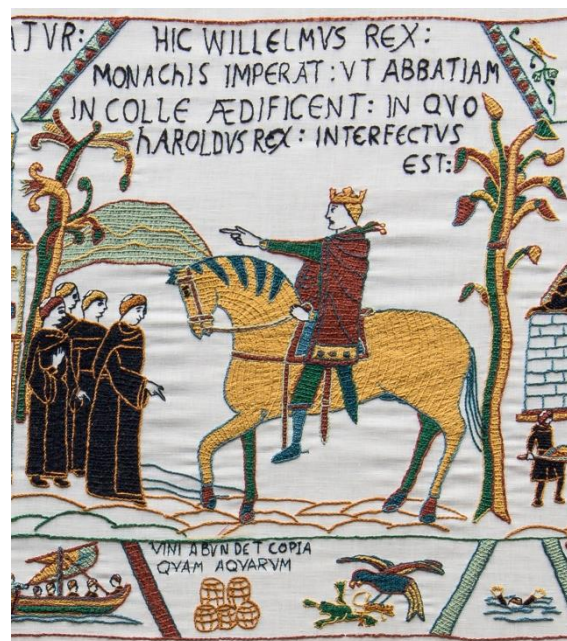 ATVR:
HIC WILLELMVS REX:
MONAChIS IMPERAT: VT ABBATIAM
IN COLLE ÆDIFICENT: IN QVO
hAROLDVS REX: INTERFECTVS
EST:
VINI ABVNDET COPIA
QVAM AQVARVM